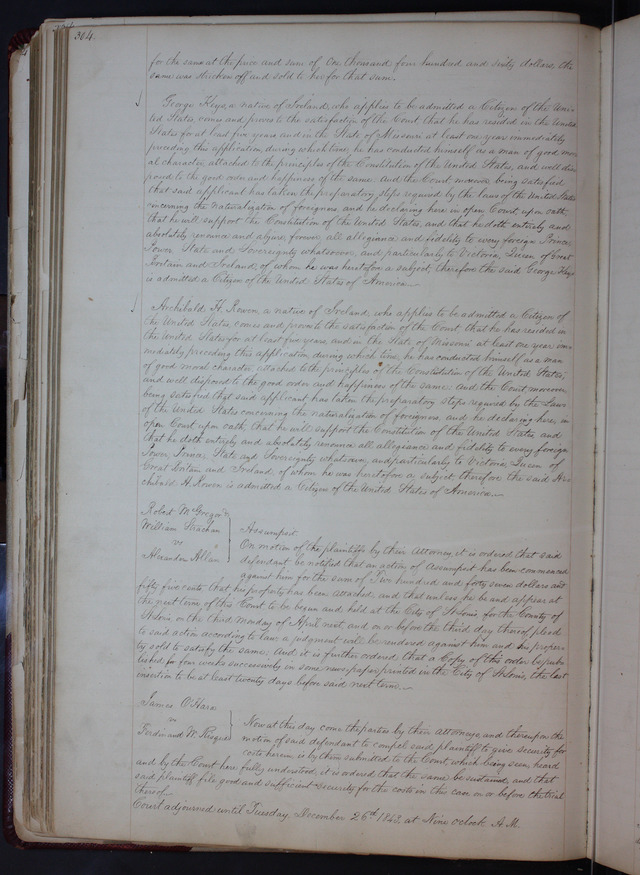 304.
for the same at the price and sum of One thousand four hundred and sixty dollars, the
same was stricken off and sold to her for that sum.
George Keys, a native of Ireland, who applies to be admitted a Citizen of the Uni-
ted States, comes and proves to the satisfaction of the Court that he has resided in the United
States for at least five years and in the State of Missouri at least one year immediately
preceding this application, during which time, he has conducted himself as a man of good mor-
al character, attached to the principles of the Constitution of the United States, and well dis-
posed to the good order and happiness of the same. And the Court moreover being satisfied
that said applicant has taken the preparatory steps required by the laws of the United States
concerning the naturalization of foreigners, and he declaring here in open Court, upon oath
that he will support the Constitution of the United States, and that he doth entirely and
absolutely renounce and abjure forever all allegiance and fidelity to every foreign Prince,
Power, State and Sovereignty whatsoever, and particularly to Victoria, Queen of Great
Britain and Ireland, of whom he was heretofore a subject, therefore the said George Keys
is admitted a Citizen of the United States of America.
Archibald H. Rowen, a native of Ireland, who applies to be admitted a Citizen of
the United States, comes and proves to the satisfaction of the Court that he has resided in
the United States for at least five years, and in the State of Missouri at least one year im-
mediately preceding this application, during which time, he has conducted himself as a man
of good moral character, attached to the principles of the Constitution of the United States,
and well disposed to the good order and happiness of the same. And the Court, moreover
being satisfied that said applicant has taken the preparatory steps required by the Laws
of the United States concerning the naturalization of foreigners, and he declaring here, in
open Court upon oath, that he will support the Constitution of the United States, and
that he doth entirely and absolutely renounce all allegiance and fidelity to every foreign
Power, Prince, State and Sovereignty whatsoever, and particularly to Victoria, Queen of
Great Britain and Ireland, of whom he was heretofore a subject, therefore the said Ar-
chibald H. Rowen is admitted a Citizen of the United States of America.
Robert McGregor
William Strachan
vs
Alexander Allan
Assumpsit.
On motion of the plaintiffs by their Attorney, it is ordered that said
defendant be notified that an action of Assumpsit has been commenced
against him for the sum of Two hundred and forty seven dollars and
fifty five cents, that his property has been attached, and that unless he be and appear at
the next term of this Court to be begun and held at the City of St Louis, for the County of
St Louis on the third Monday of April next, and on or before the third day thereof, plead
to said action according to law, a judgment will be rendered against him and his proper-
ty sold to satisfy the same; And it is further ordered that a Copy of this order be pub-
lished for four weeks successively in some newspaper printed in the City of St Louis, the last
insertion to be at least twenty days before said next term.
James O'Hara
vs
Ferdinand W.
Now at this day come the parties by their attorneys, and thereupon the
motion of said defendant to compel said plaintiff to give security for
costs herein is by them submitted to the Court, which being seen, heard
and by the Court here fully understood, it is ordered that the same be sustained, and that
said plaintiff file good and sufficient security for the costs in this case on or before the trial
thereof.
Court adjourned until Tuesday December 26th 1843. at Nine oclock A.M.